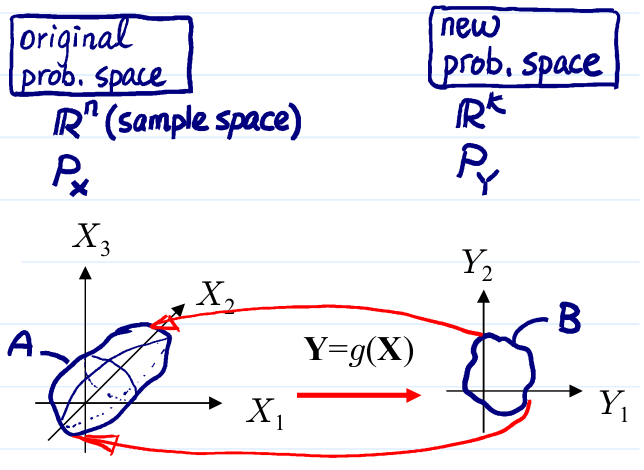 original
prob. space
ℝⁿ (sample space)
P_X
new
prob. space
ℝᵏ
P_Y
X₃
X₂
A
X₁
Y=g(X)
Y₂
B
Y₁